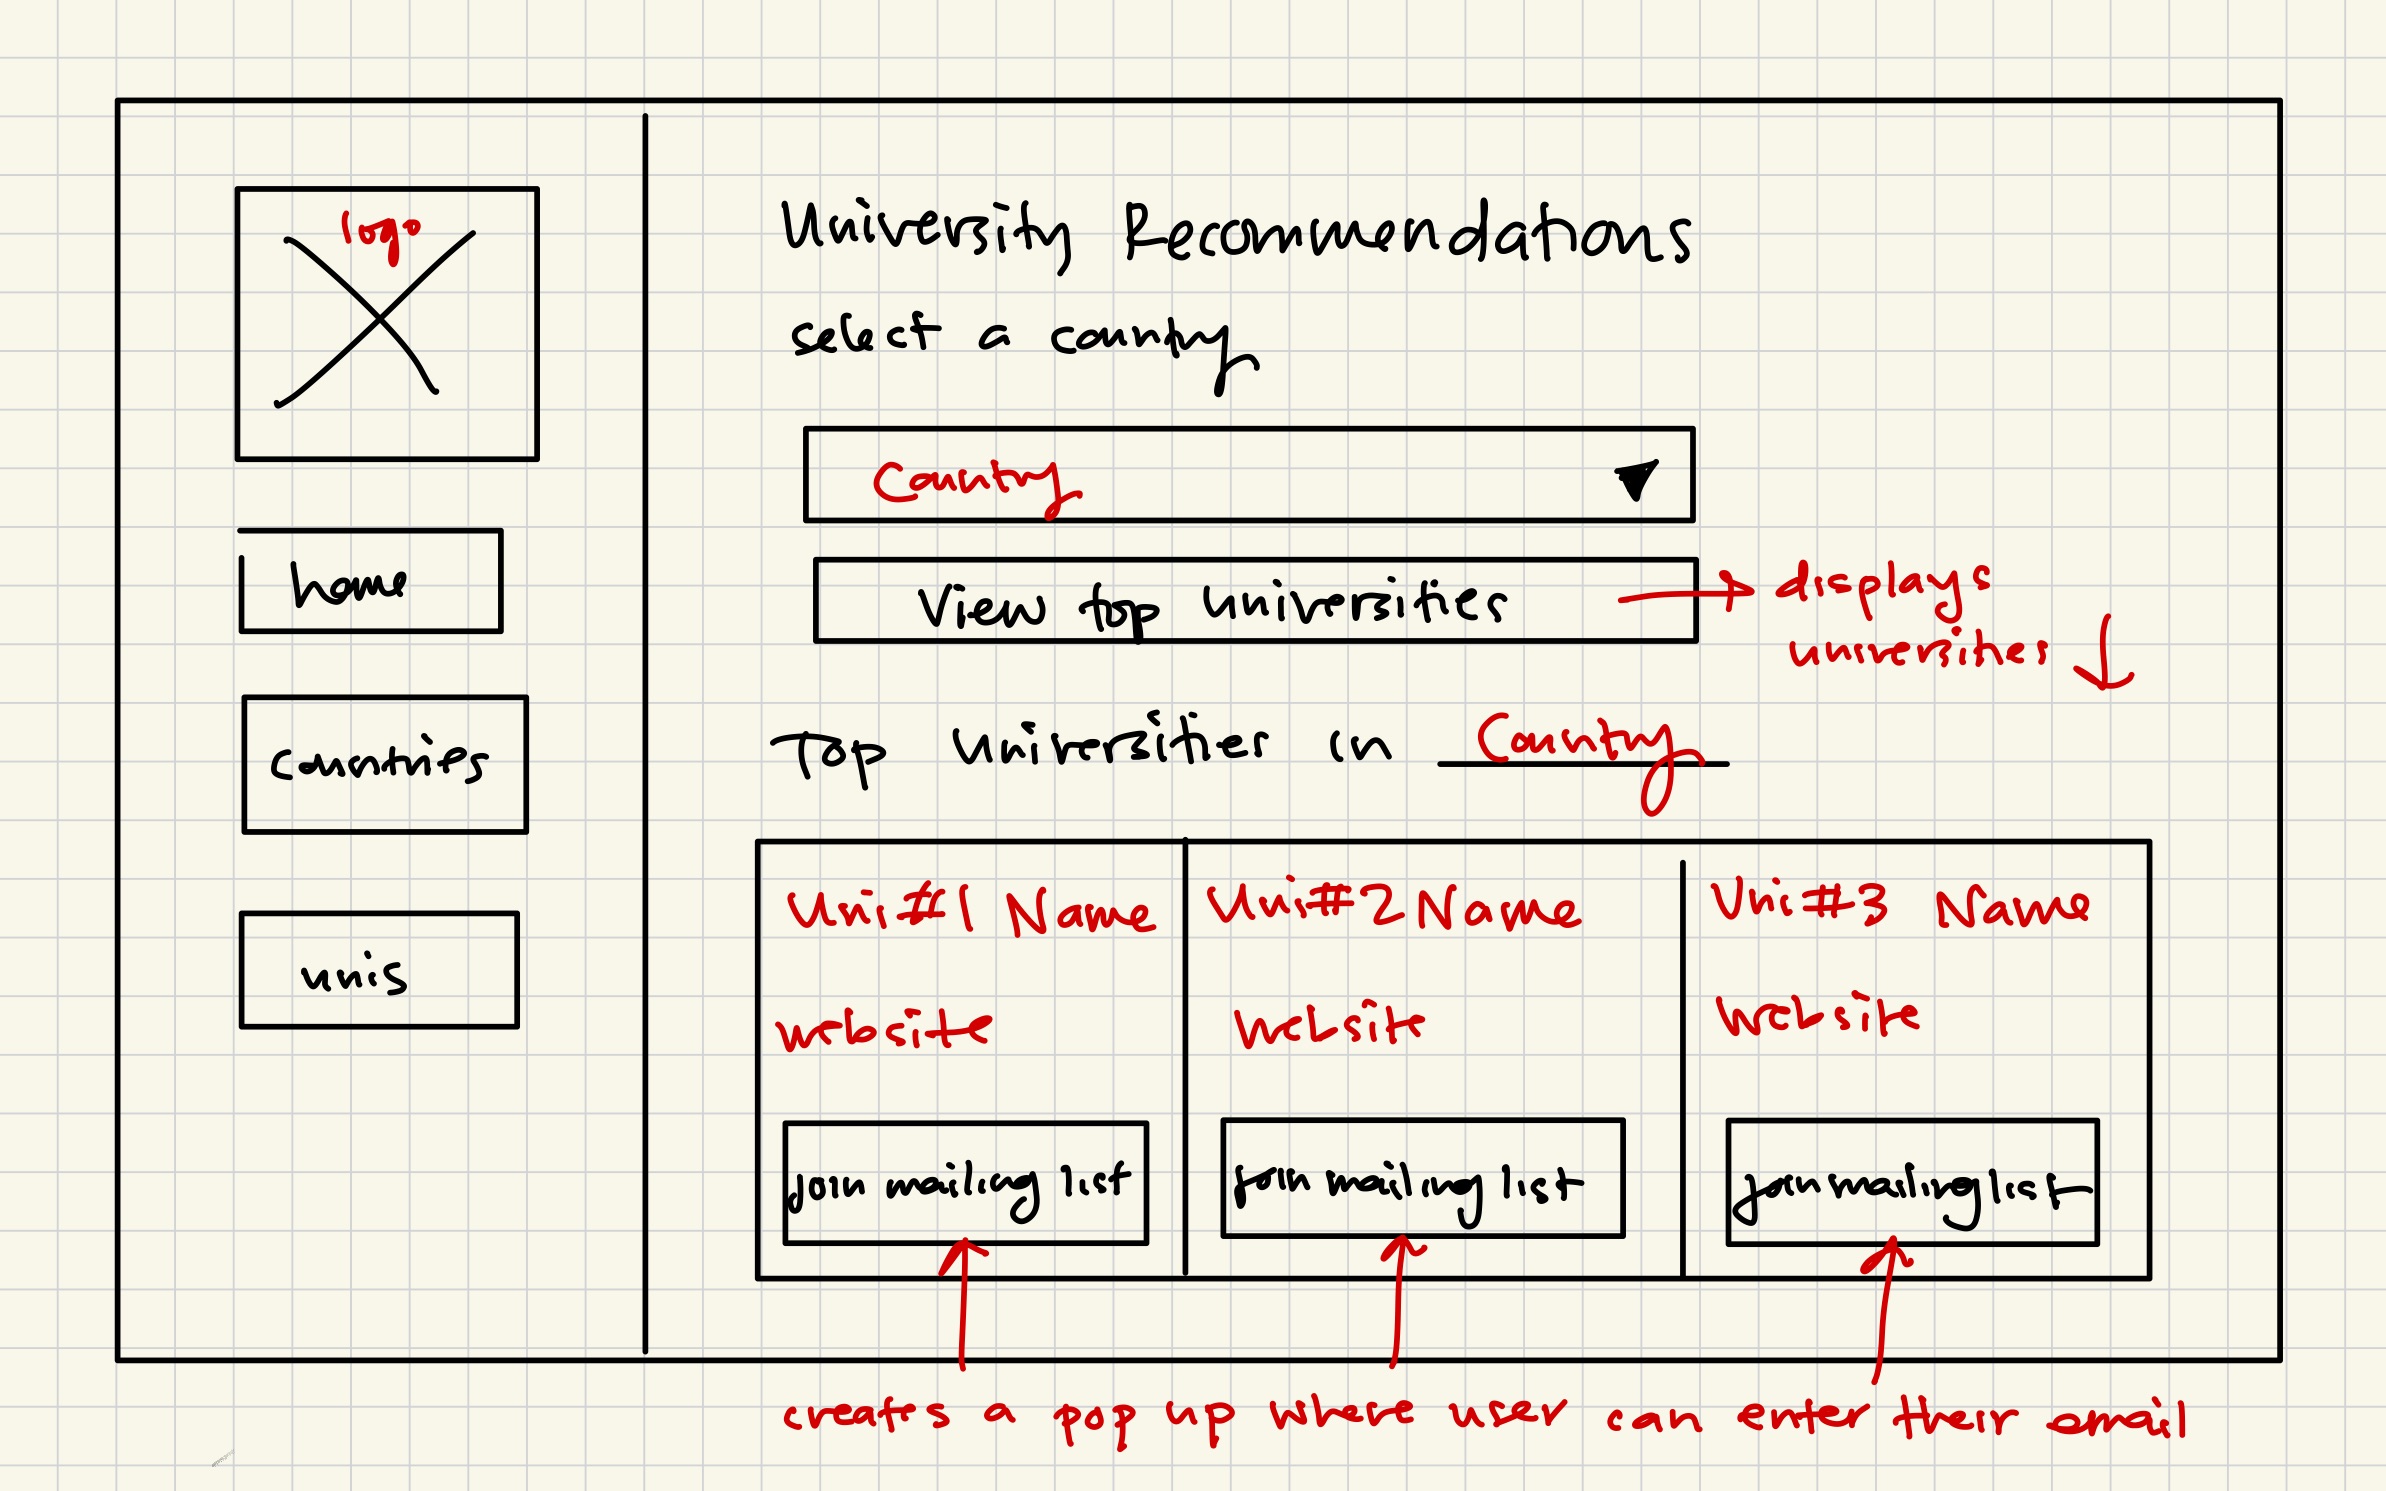 logo
home
countries
unis
University Recommendations
select a country
Country
View top universities
displays
universities
Top Universities in Country
Uni#1 Name
website
join mailing list
Uni#2 Name
website
join mailing list
Uni#3 Name
website
join mailing list
creates a pop up where user can enter their email